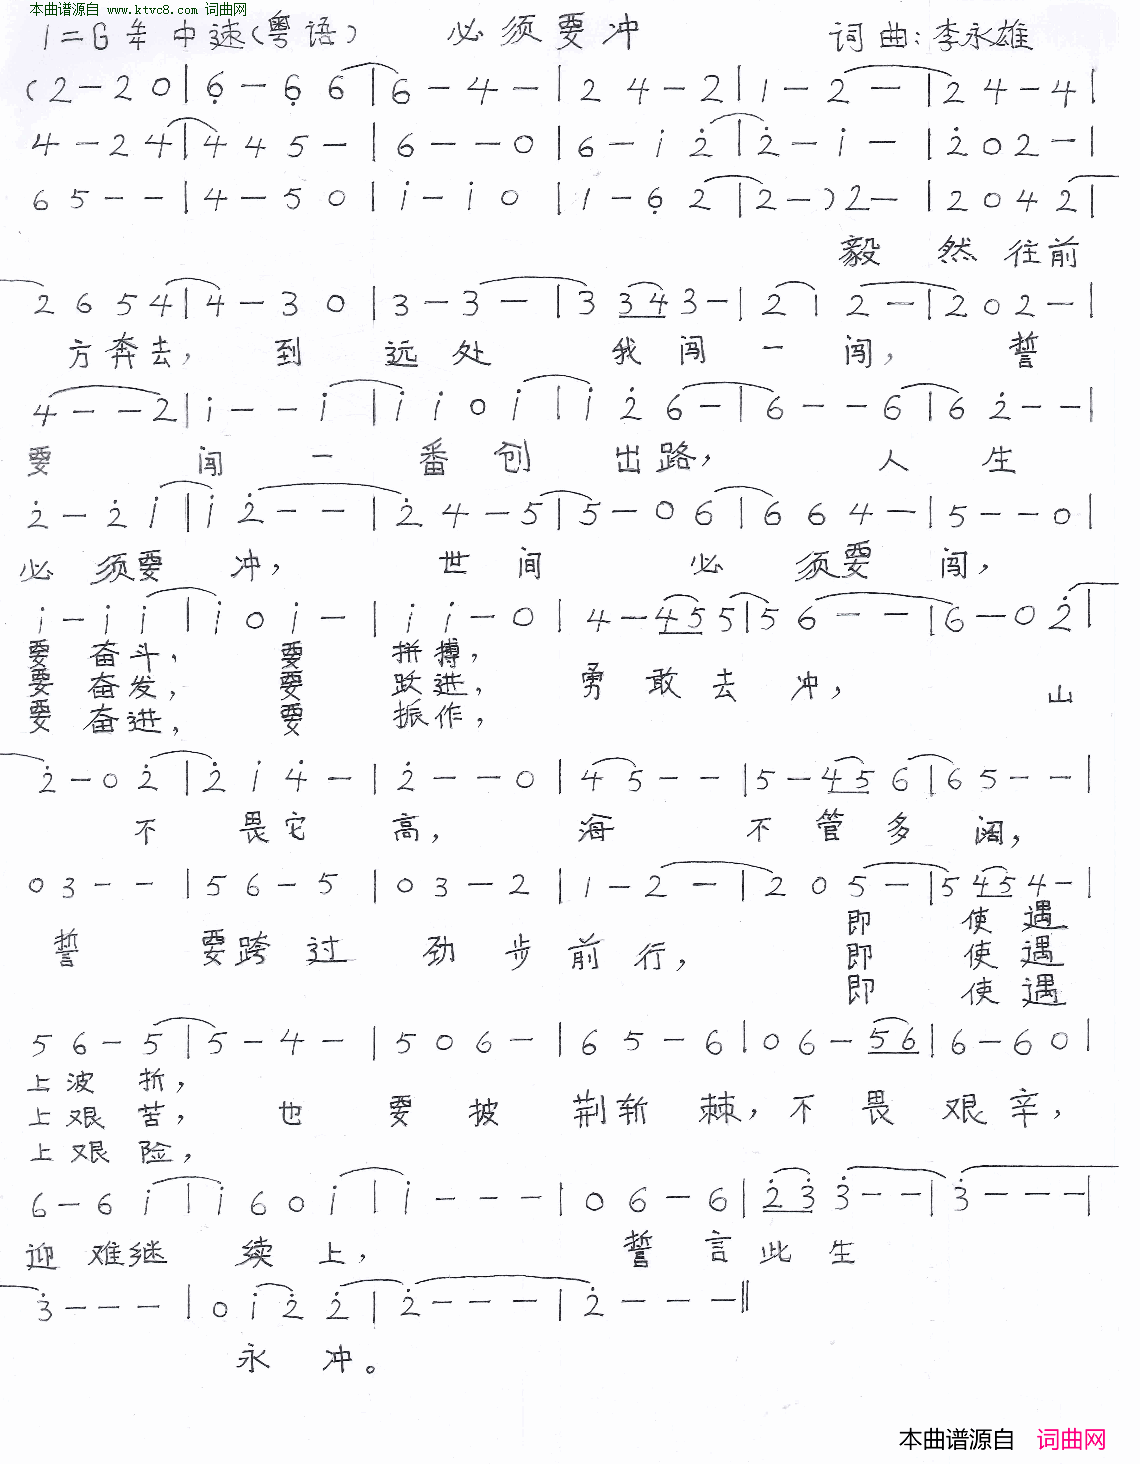 本曲谱源自 www.ktvc8.com 词曲网
1=G 4/4 中速(粤语) 必须要冲 词曲:李永雄
(2-20|6-66|6-4-|24-2|1-2-|24-4|
4-24|445-|6--0|6-i2|2-i-|202-|
65--|4-50|i-i0|1-62|2-)2-|2042|
毅然往前
2654|4-30|3-3-|3343-|212-|202-|
方奔去,到远处我闯一闯,誓
4--2|i--i|ii0i|i26-|6--6|62--|
要闯一番创出路,人生
2-2i|i2--|24-5|5-06|664-|5--0|
必须要冲,世间必须要闯,
i-ii|i0i-|ii-0|4-455|56--|6-02|
要奋斗,要拼搏,
要奋发,要跃进,勇敢去冲,山
要奋进,要振作,
2-02|2i4-|2--0|45--|5-456|65--|
不畏它高,海不管多阔,
03--|56-5|03-2|1-2-|205-|5454-|
即使遇
誓要跨过劲步前行,即使遇
即使遇
56-5|5-4-|506-|65-6|06-56|6-60|
上波折,
上艰苦,也要披荆斩棘,不畏艰辛,
上艰险,
6-6i|i60i|i---|06-6|233--|3---|
迎难继续上,誓言此生
3---|0i22|2---|2---‖
永冲。
本曲谱源自 词曲网